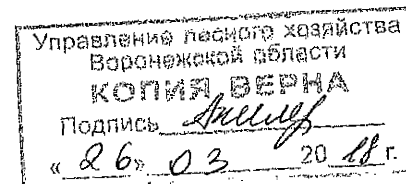 Управление лесного хозяйства
Воронежской области
КОПИЯ ВЕРНА
Подпись
«26» 03 2018 г.